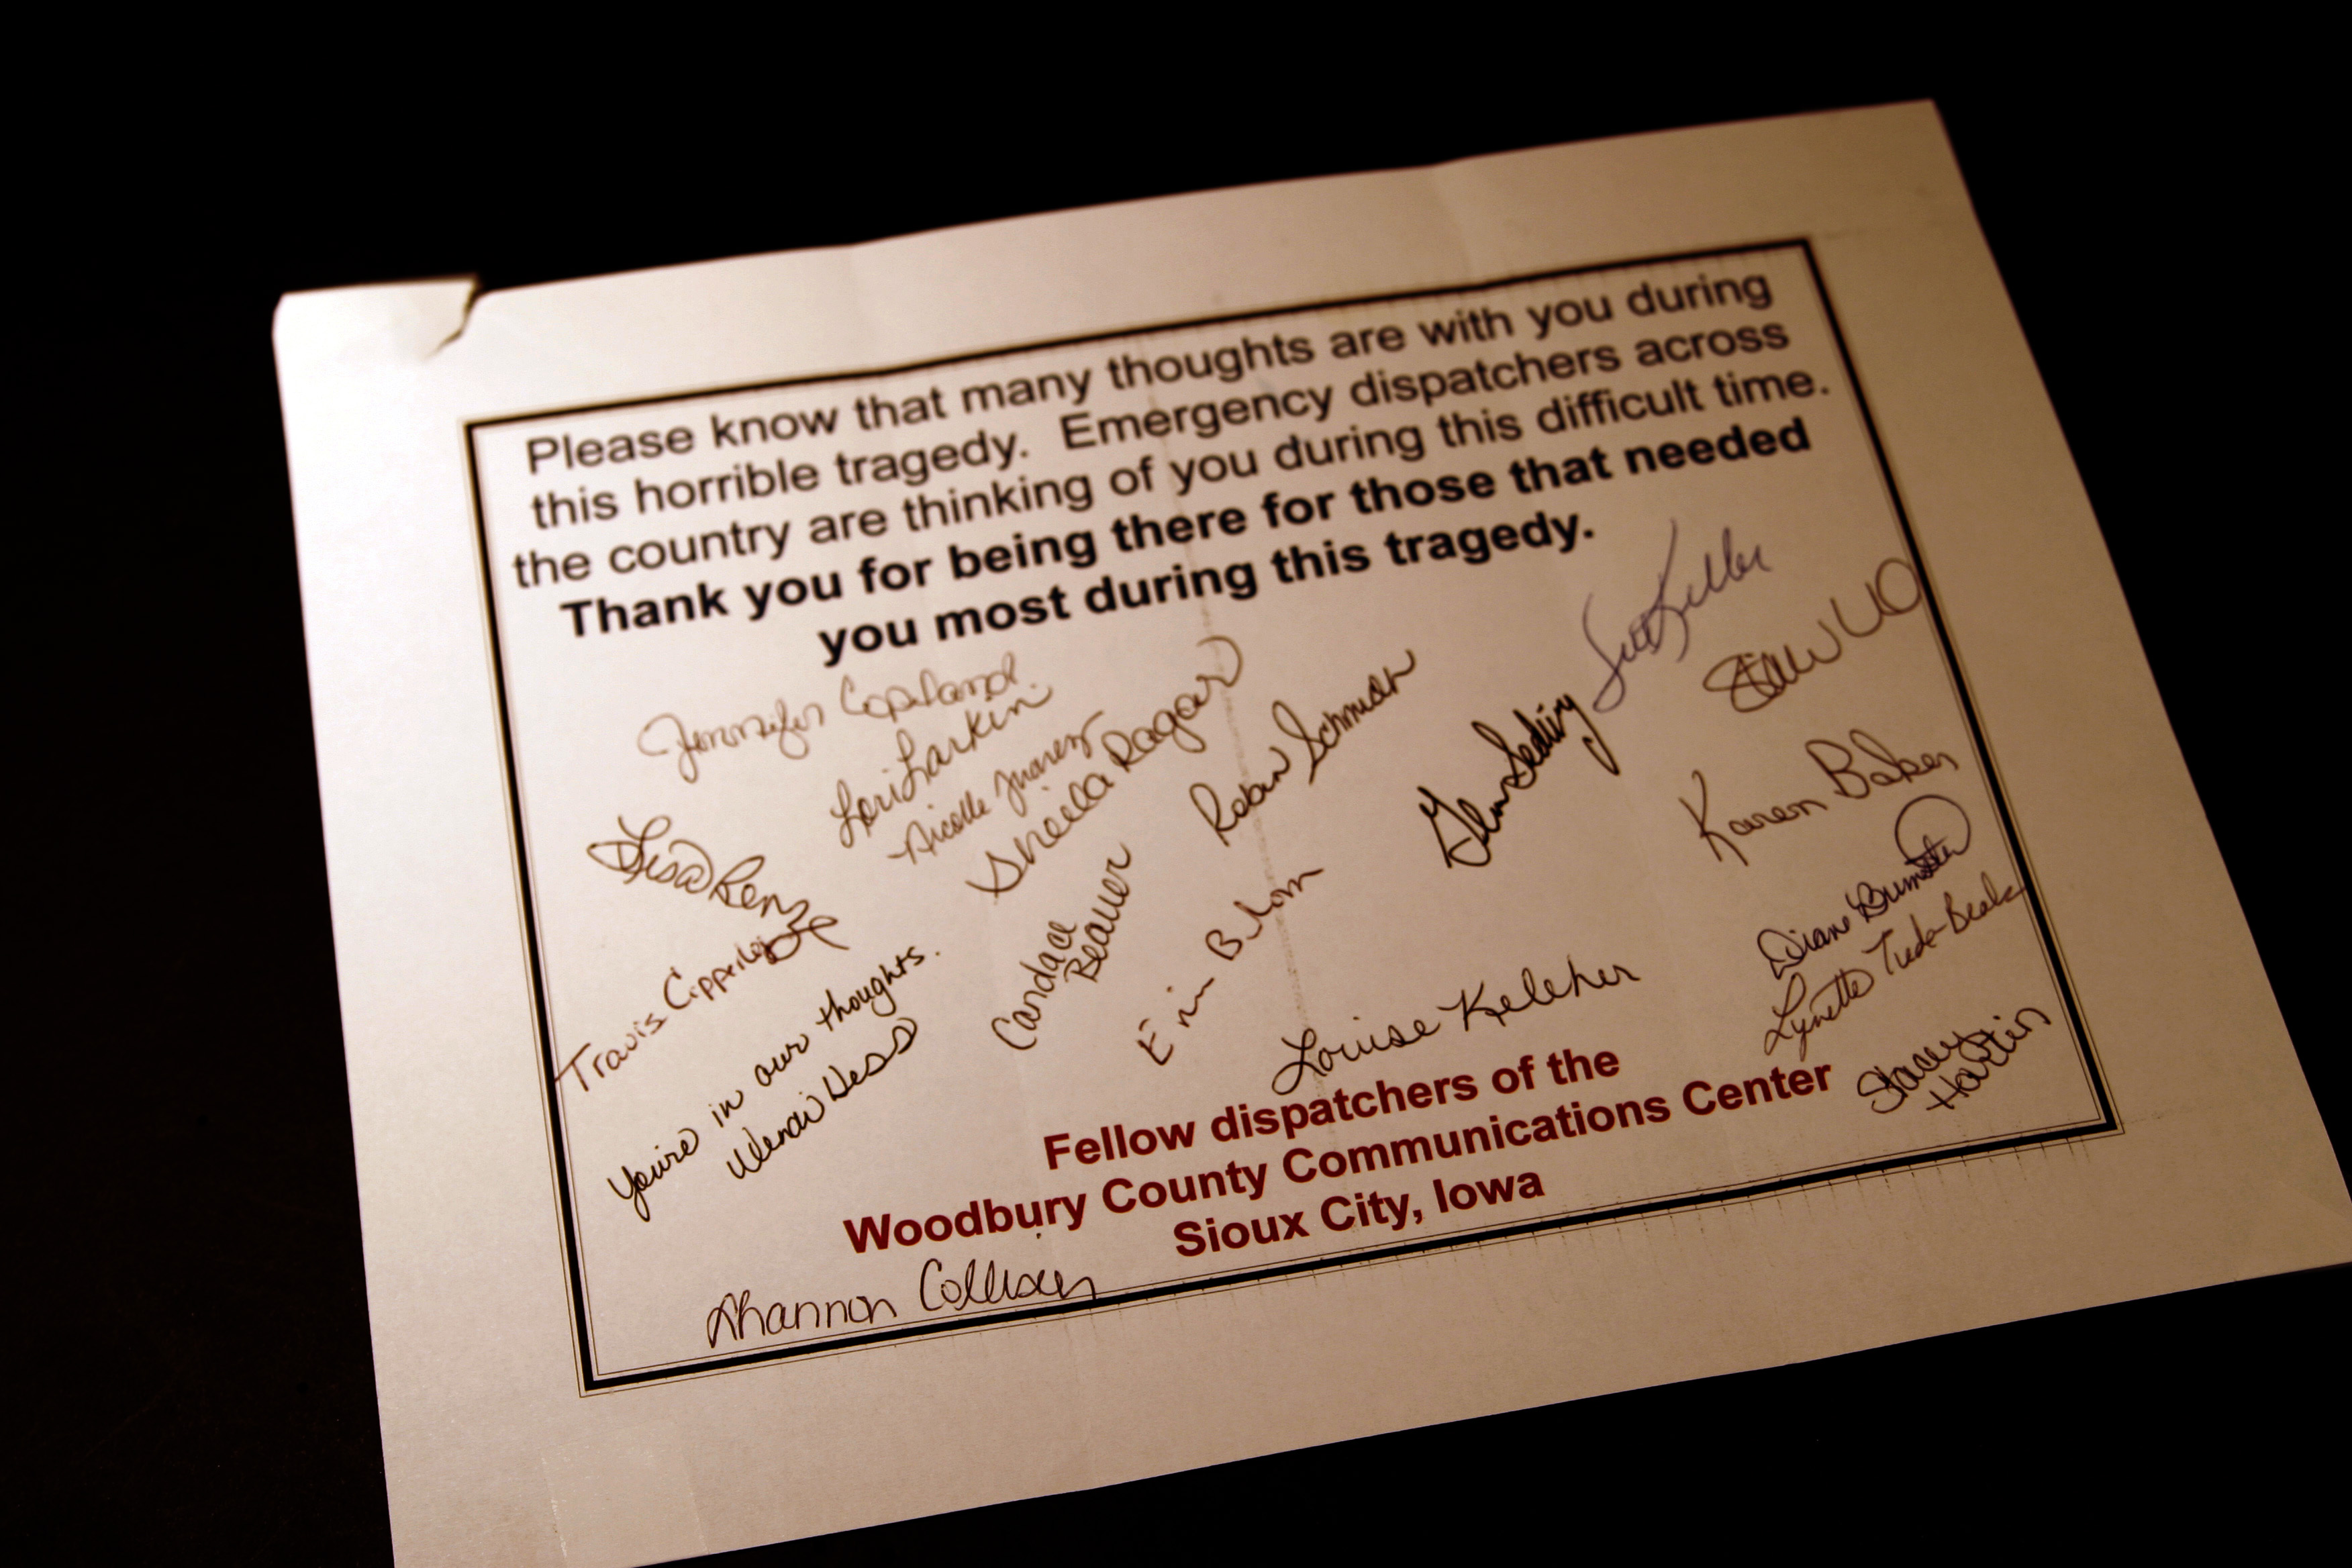 Please know that many thoughts are with you during
this horrible tragedy. Emergency dispatchers across
the country are thinking of you during this difficult time.
Thank you for being there for those that needed
you most during this tragedy.
Jennifer Copeland
Lori Larkin
Nicolle Juarez
Sheila Ragar
Robin Schmidt
Karen Baker
Lisa
Travis
Candace
Beaver
Erin Blom
Louise Kelcher
Diane
Lynette
Stacey
You're in our thoughts.
Wendi Hess
Fellow dispatchers of the
Woodbury County Communications Center
Sioux City, Iowa
Shannon